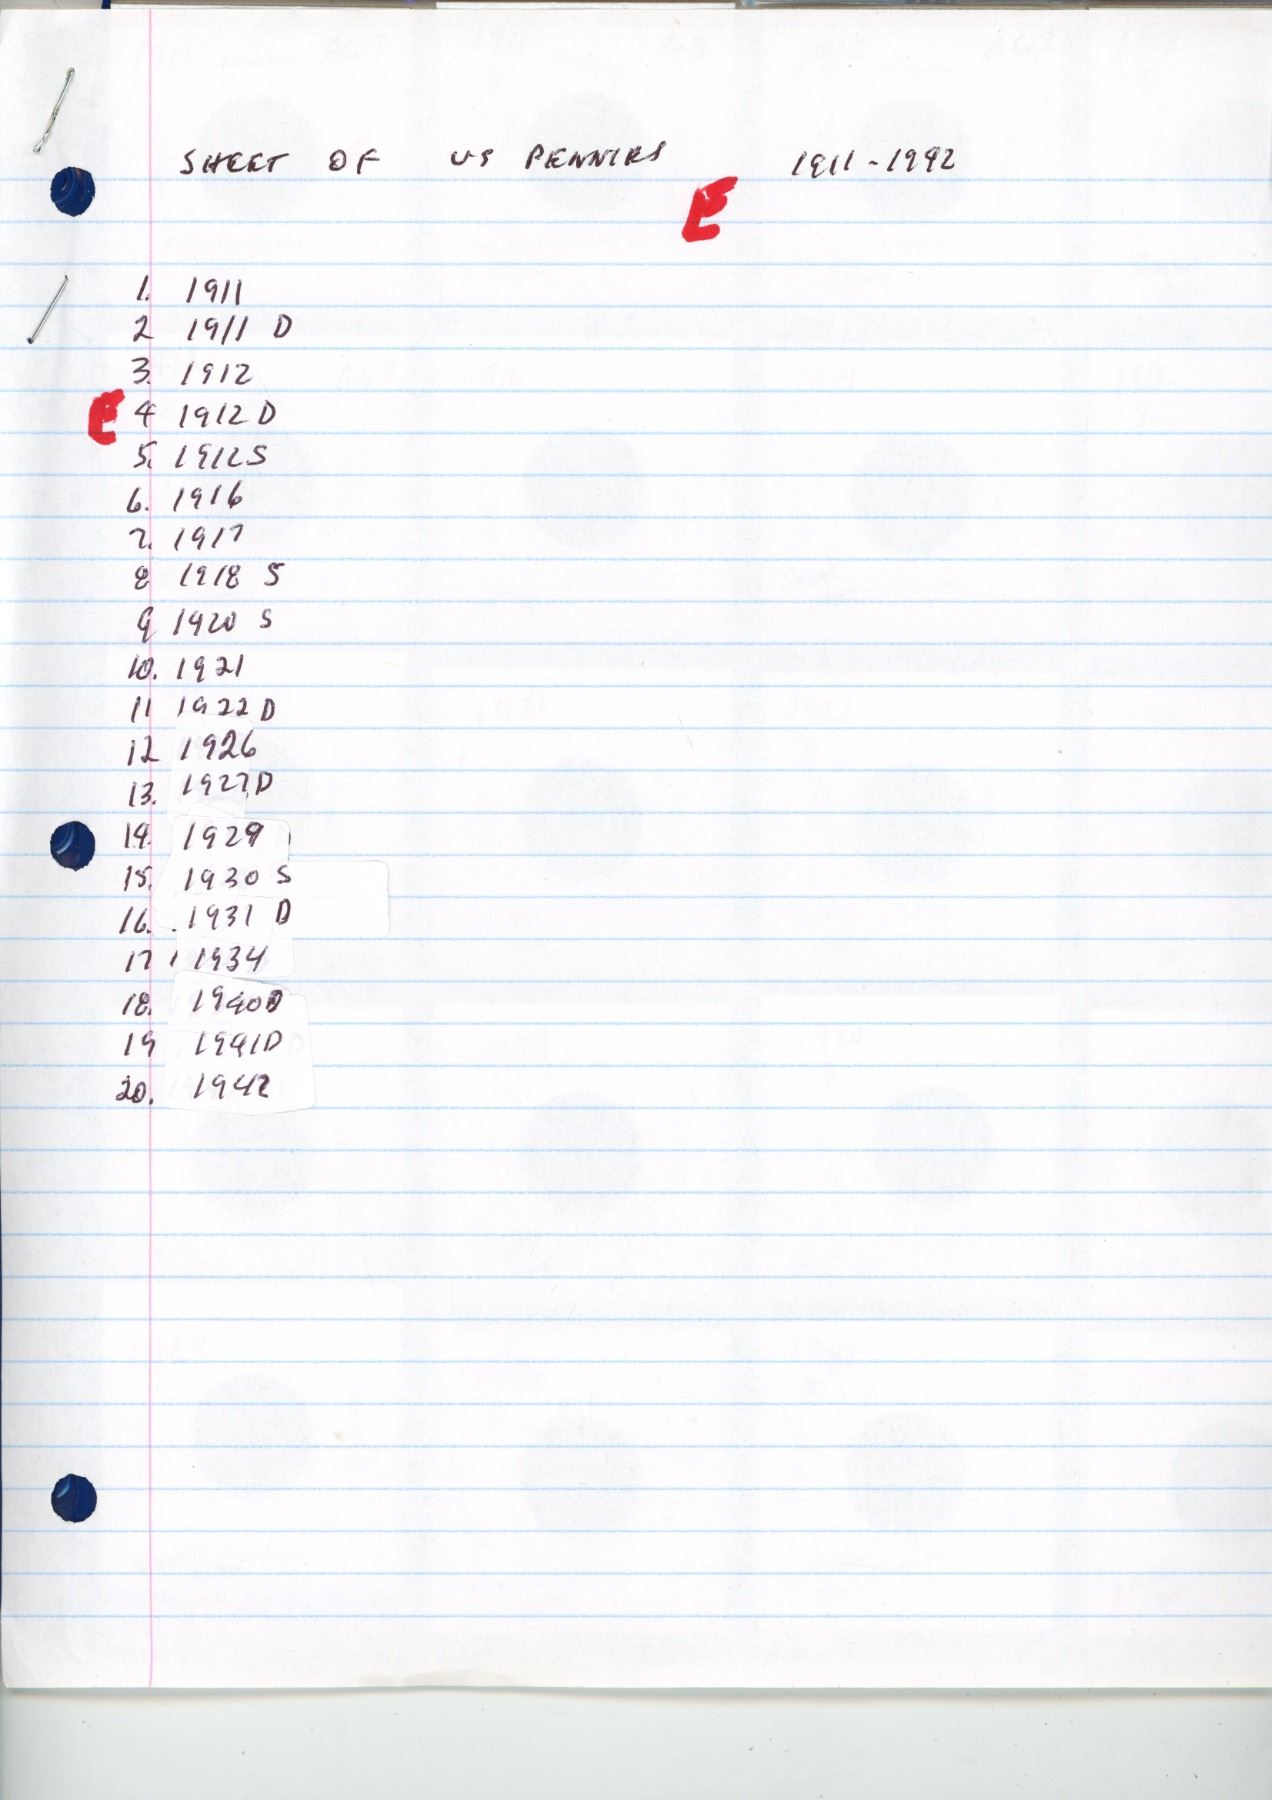 SHEET OF US PENNIES 1911-1942
E
1. 1911
2 1911 D
3. 1912
E 4 1912 D
5. 1912 S
6. 1916
7. 1917
8 1918 S
9 1920 S
10. 1921
11 1922 D
12 1926
13. 1927 D
14. 1929
15. 1930 S
16. 1931 D
17 1934
18. 1940 D
19 1941 D
20. 1942